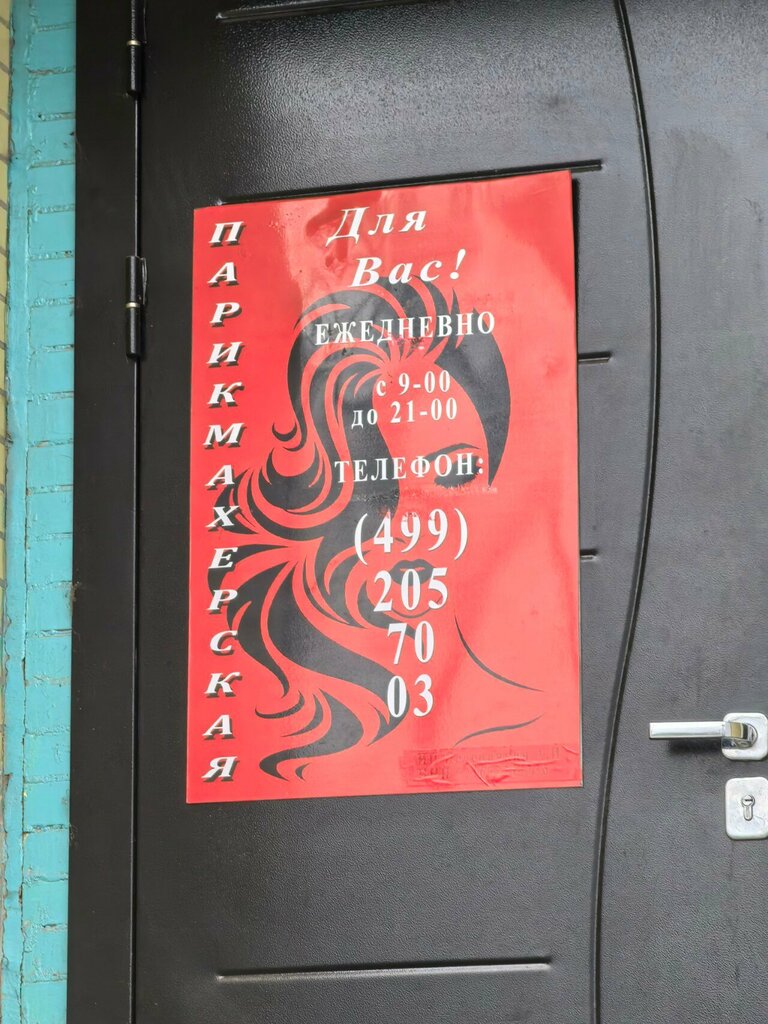 ПАРИКМАХЕРСКАЯ
Для
Вас!
ЕЖЕДНЕВНО
с 9-00
до 21-00
ТЕЛЕФОН:
(499)
205
70
03